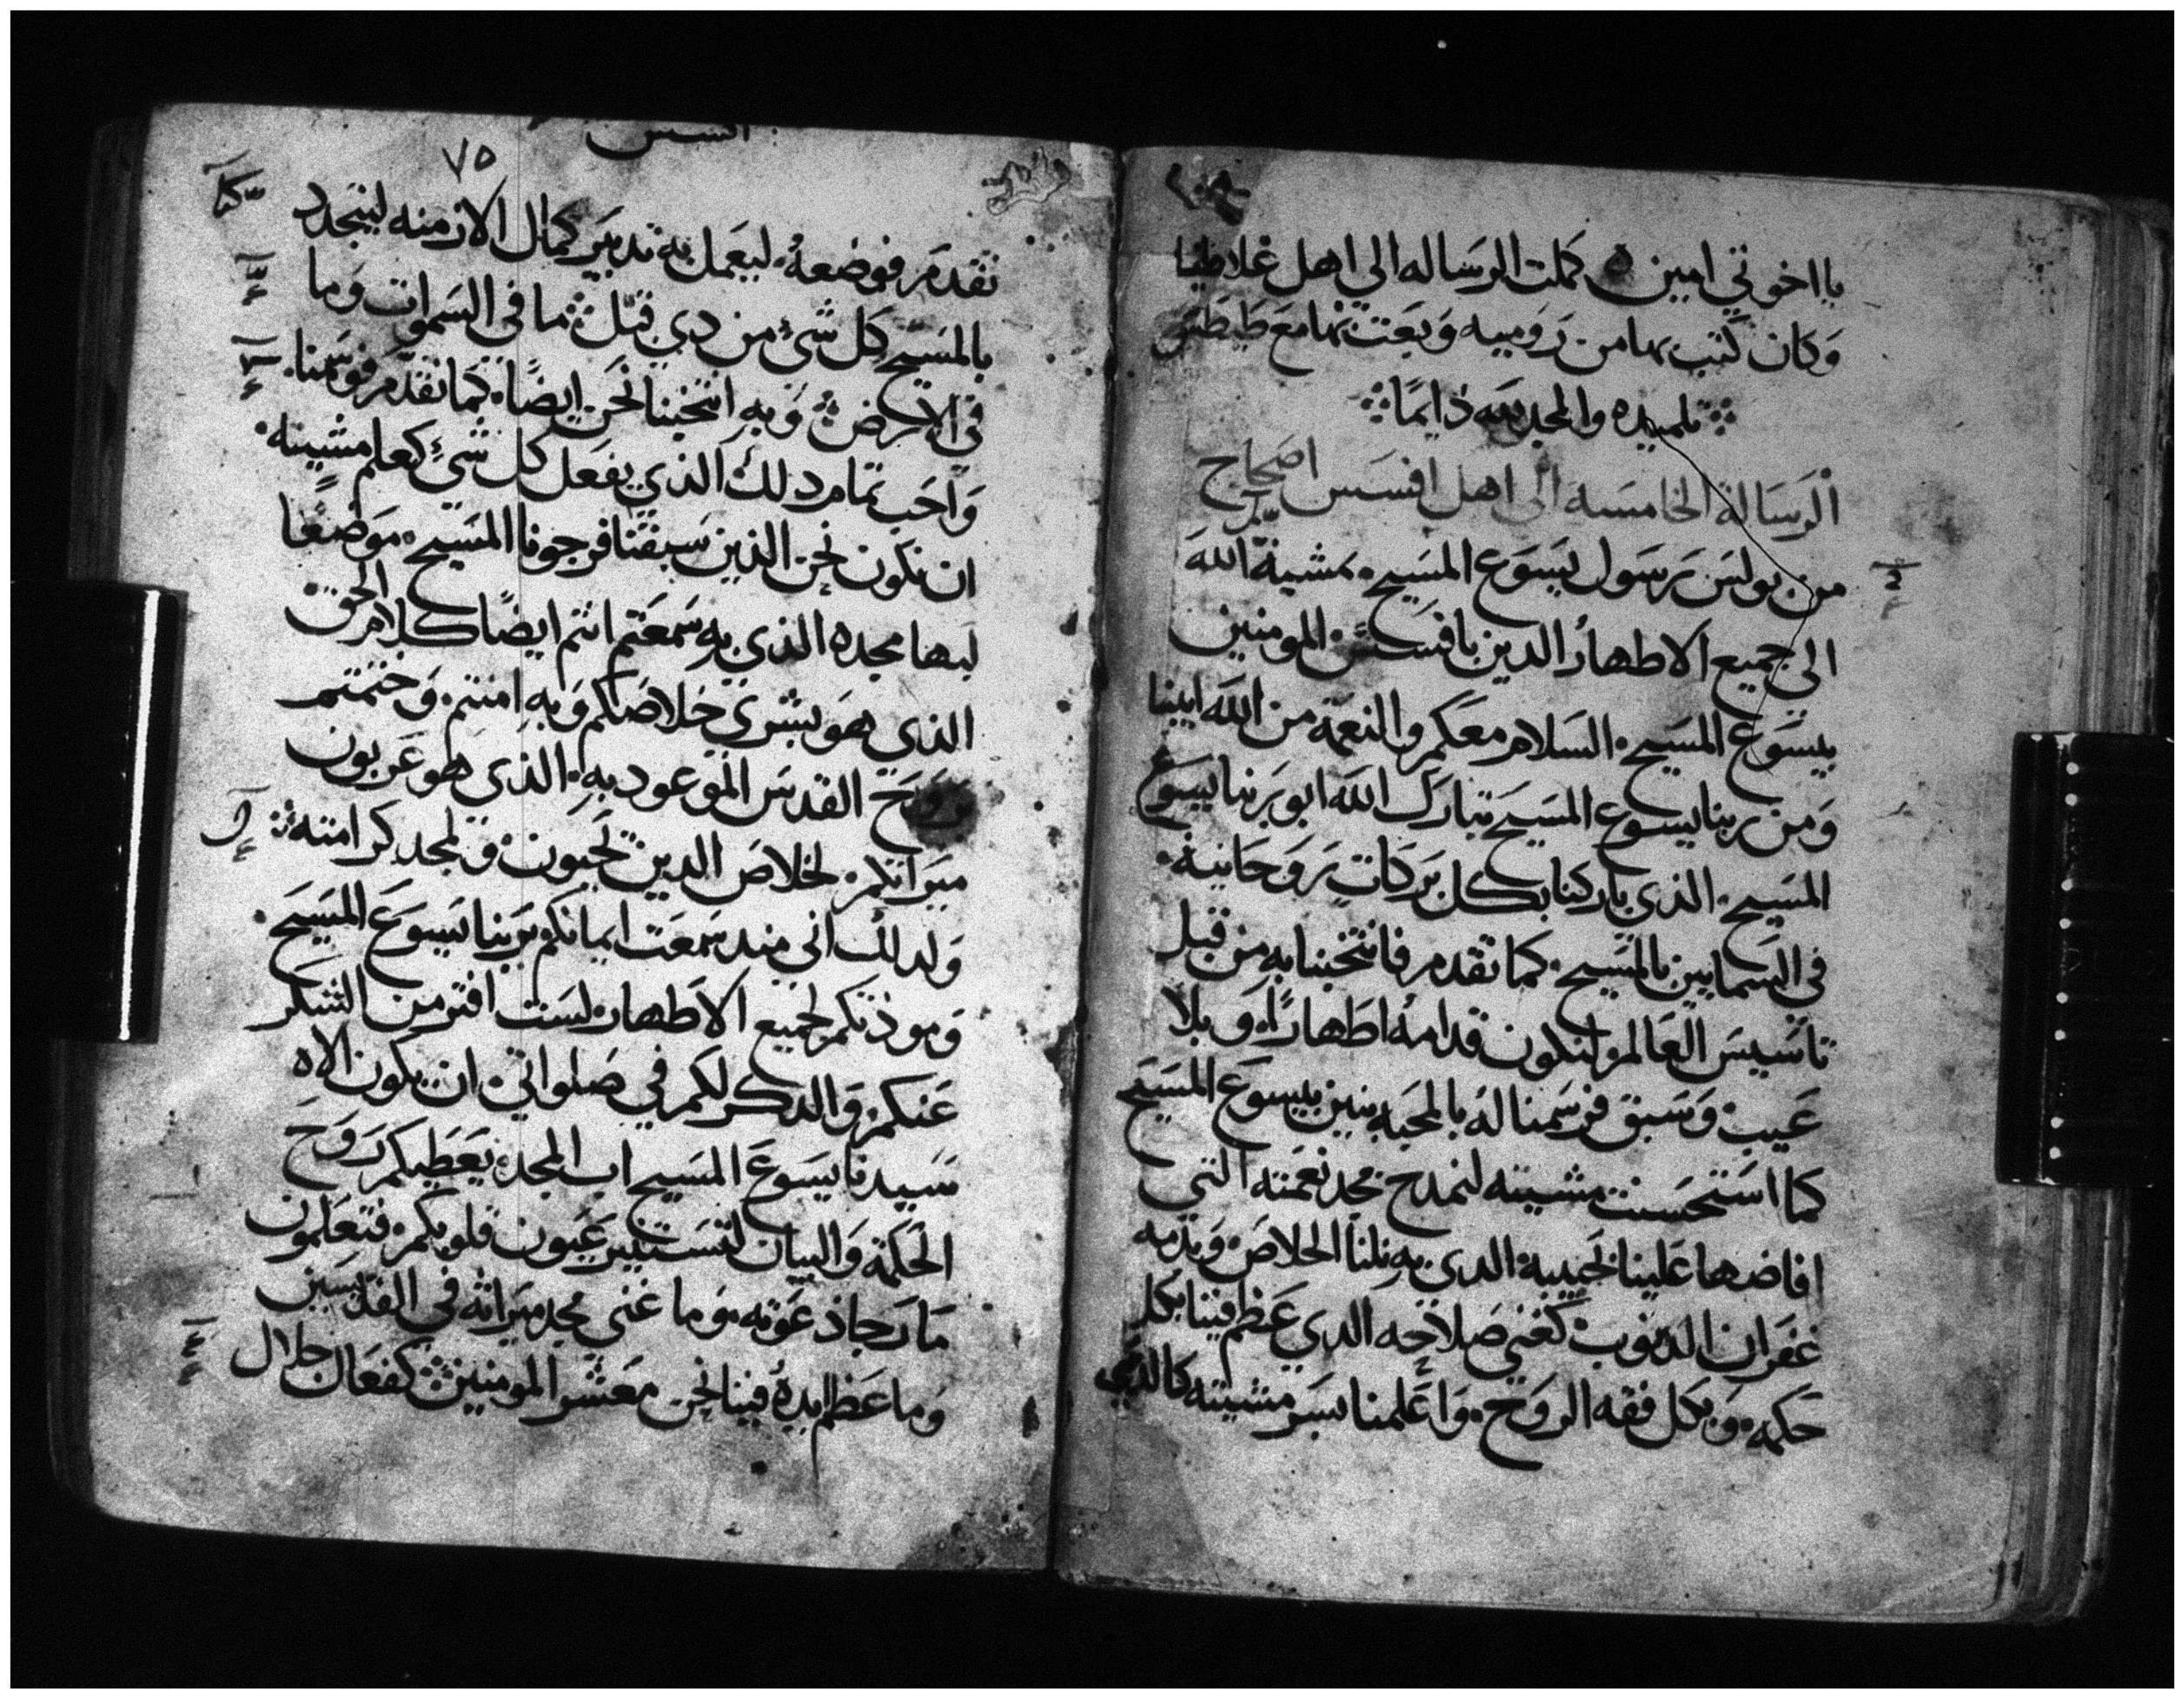 يااخوتي امين ه كملت الرساله الي اهل غلاطيا
وكان كتب بها من روميه وبعت بها مع طيطس
تلميده والمجد لله دايما
الرسالة الخامسه الى اهل افسس اصحاح
من بولس رسول يسوع المسيح. بمشية الله
الي جميع الاطهار الدين بافسس المومنين
بيسوع المسيح. السلام معكم والنعمة من الله ابينا
ومن ربنا يسوع المسيح تبارك الله ابو ربنا يسوع
المسيح. الذي باركنا بكل بركات روحانية.
في السمايين بالمسيح. كما تقدم فانتخبنا به من قبل
تاسيس العالم لنكون قدامه اطهارًا. وبلا
عيب. وسبق فرسمنا له بالمحبه بنين بيسوع المسيح
كما استحسنت مشيته لنمدح مجد نعمته التي
افاضها علينا بحبيبه الدي به نلنا الخلاص وبدمه
غفران الدنوب. كغني صلاحه الدي عظم فينا بكل
حكمه. وبكل فقه الروح. واعلمنا بسر مشيته كالذي
افسس
٧٥
تقدم فوضعه. ليعمل به تدبير كمال الازمنه ليتجدد
بالمسيح كل شي من دي قبل ما في السموات وما
في الارض وبه انتخبنا نحن ايضًا. كما تقدم فرسمنا.
واحب تمام دلك الذي يفعل كل شي كعلم مشيته.
ان نكون نحن الذين سبقنا فرجونا المسيح. موضعًا
لبها مجده الذي به سمعتم انتم ايضًا كلام الحق
الذي هو بشرى خلاصكم وبه امنتم. وختمتم
بروح القدس الموعود به. الذي هو عربون
ميراتكم. لخلاص الدين تحيون. ولمجد كرامته
ولدلك اني مند سمعت ايمانكم بربنا يسوع المسيح.
ومودتكم لجميع الاطهار. لست افتر من الشكر
عنكم. والدكر لكم في صلواتي. ان يكون الاه
سيدنا يسوع المسيح اب المجد. يعطيكم روح
الحكمة والبيان لتستنير عيون قلوبكم. فتعلمون
ما رجا دعوته وما غنى مجد ميراثه في القديسين
وما عظم ايده فينا نحن معشر المومنين كفعال جلال